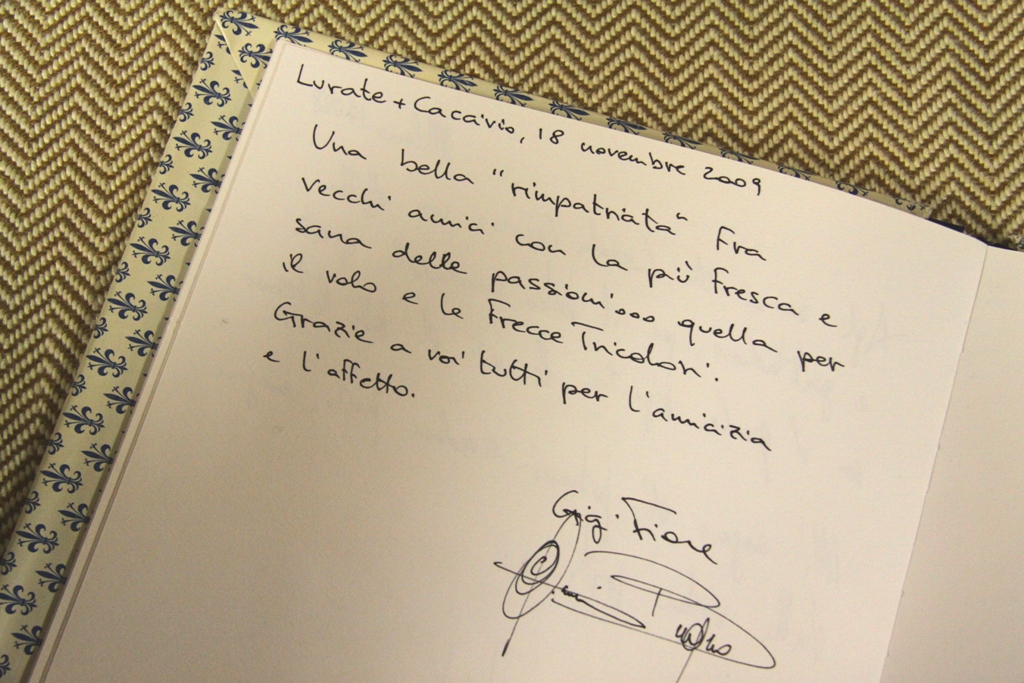 Lurate + Cacavio, 18 novembre 2009
Una bella "rimpatriata" fra
vecchi amici con la più fresca e
sana delle passioni... quella per
il volo e le Frecce Tricolori.
Grazie a voi tutti per l'amicizia
e l'affetto.
Gigi Fiore